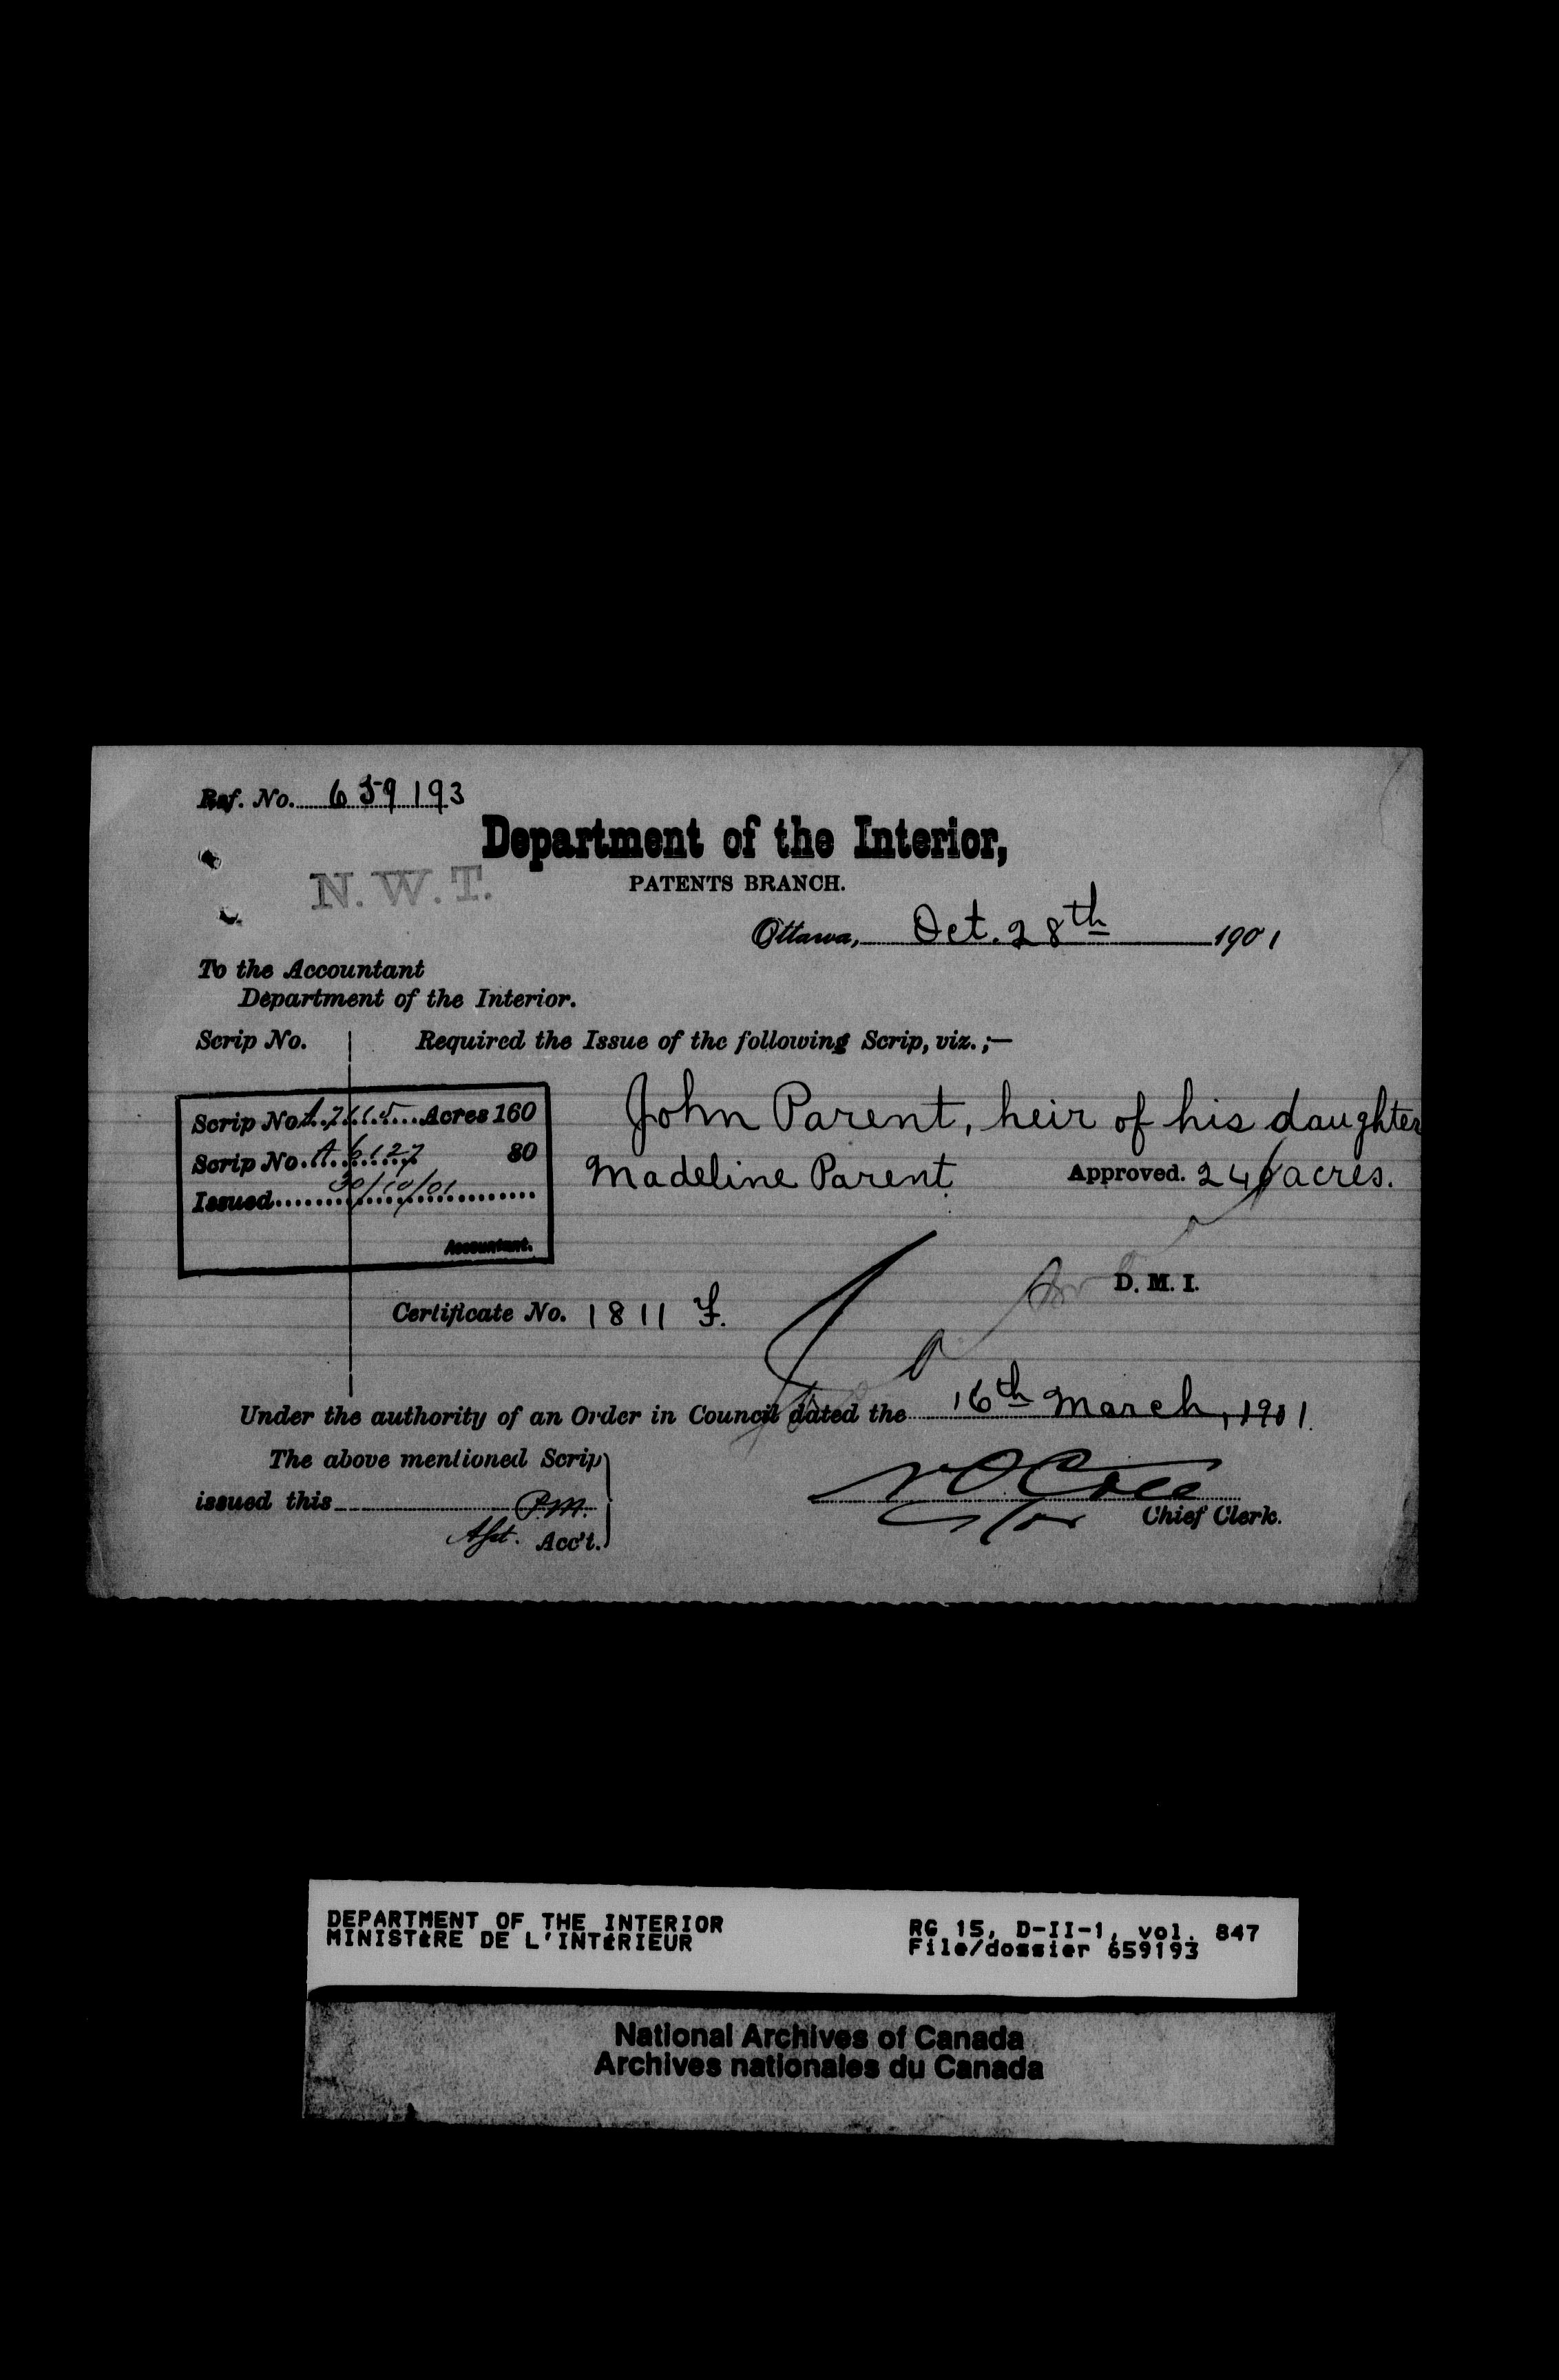 Ref. No. 659193
Department of the Interior,
N. W. T.
PATENTS BRANCH.
Ottawa, Oct. 28th 1901
To the Accountant
Department of the Interior.
Scrip No. Required the Issue of the following Scrip, viz.;—
Scrip No. Acres 160
John Parent, heir of his daughter
Scrip No. A 6127 80
Madeline Parent. Approved. 240 acres.
Issued 30/10/01
Accountant.
D. M. I.
Certificate No. 1811 F.
Under the authority of an Order in Council dated the 16th March, 1901.
The above mentioned Scrip
issued this P.M.
Asst. Acc't.
Chief Clerk.
DEPARTMENT OF THE INTERIOR
MINISTÈRE DE L'INTÉRIEUR
RG 15, D-II-1, vol. 847
File/dossier 659193
National Archives of Canada
Archives nationales du Canada